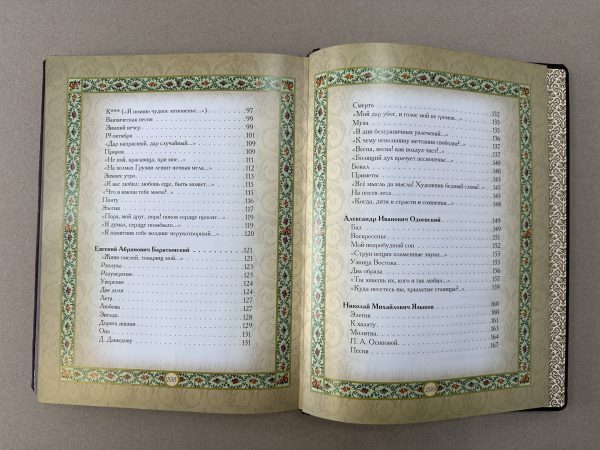 К*** («Я помню чудное мгновенье...») 97
Вакхическая песня 99
Зимний вечер 99
19 октября 101
«Дар напрасный, дар случайный...» 109
Пророк 109
«Не пой, красавица, при мне...» 111
«На холмах Грузии лежит ночная мгла...» 113
Зимнее утро 113
«Я вас любил: любовь еще, быть может...» 115
«Что в имени тебе моем?..» 115
Поэту 117
Элегия 117
«Пора, мой друг, пора! покоя сердце просит...» 119
«Я думал, сердце позабыло...» 119
«Я памятник себе воздвиг нерукотворный...» 120
Евгений Абрамович Баратынский 121
«Живи смелей, товарищ мой...» 121
Разлука 123
Разуверение 123
Уверение 124
Две доли 124
Лета 127
Любовь 127
Звезда 128
Дорога жизни 129
Она 131
Д. Давыдову 131
Смерть 132
«Мой дар убог, и голос мой не громок...» 135
Муза 135
«В дни безграничных увлечений...»
«К чему невольнику мечтания свободы?..»
«Весна, весна! как воздух чист!..»
«Болящий дух врачует песнопенье...»
Бокал
Приметы
«Всё мысль да мысль! Художник бедный слова!..» 145
На посев леса 145
«Когда, дитя и страсти и сомненья...» 148
Александр Иванович Одоевский 149
Бал 151
Воскресенье 153
Мой непробудный сон 153
«Струн вещих пламенные звуки...» 155
Узница Востока 155
Два образа 156
«Ты знаешь их, кого я так любил... 157
«Куда несетесь вы, крылатые станицы?.. 159
Николай Михайлович Языков 160
Элегия 160
К халату 161
Молитва 163
П. А. Осиповой 164
Песня 167